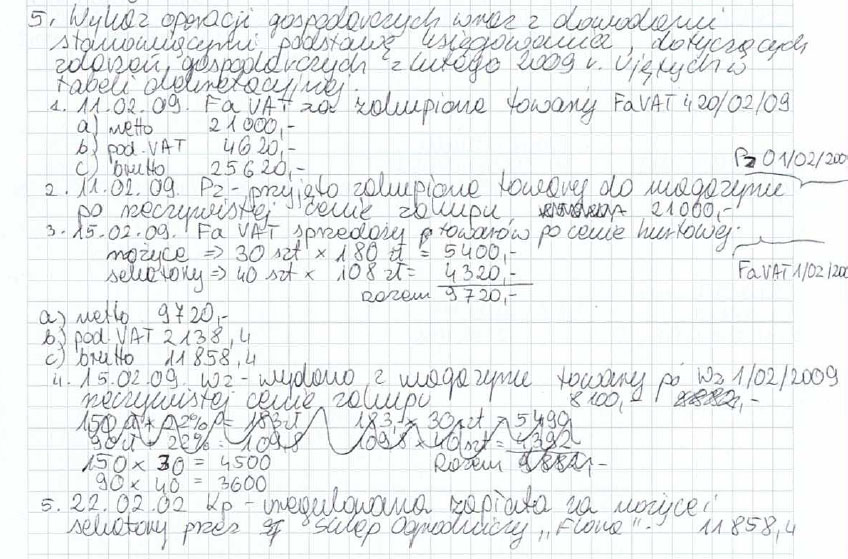 5. Wykaz operacji gospodarczych wraz z dowodami
stanowiącymi podstawę księgowania, dotyczących
zdarzeń gospodarczych z lutego 2009 r. ujętych w
tabeli dekretacyjnej.
1. 11.02.09. Fa VAT za zakupione towary Fa VAT 420/02/09
a) netto 21000,-
b) pod. VAT 4620,-
c) brutto 25620,-
Pz 01/02/2009
2. 11.02.09. Pz - przyjęto zakupione towary do magazynu
po rzeczywistej cenie zakupu 21000,-
3. 15.02.09. Fa VAT sprzedaży towarów po cenie hurtowej.
nożyce => 30 szt × 180 zł = 5400,-
sekatory => 40 szt × 108 zł = 4320,-
Fa VAT 1/02/200
Razem 9720,-
a) netto 9720,-
b) pod. VAT 2138,4
c) brutto 11858,4
4. 15.02.09 Wz - wydano z magazynu towary po Wz 1/02/2009
rzeczywistej cenie zakupu 8100,-
150 zł × 22% = 183 zł 183,- × 30 szt = 5490
90 zł × 22% = 109,8 109,8 × 40 szt = 4392
150 × 30 = 4500 Razem 9882,-
90 × 40 = 3600
5. 22.02.02 Kp - uregulowana zapłata za nożyce i
sekatory przez Sklep Ogrodniczy „Flora". 11858,4